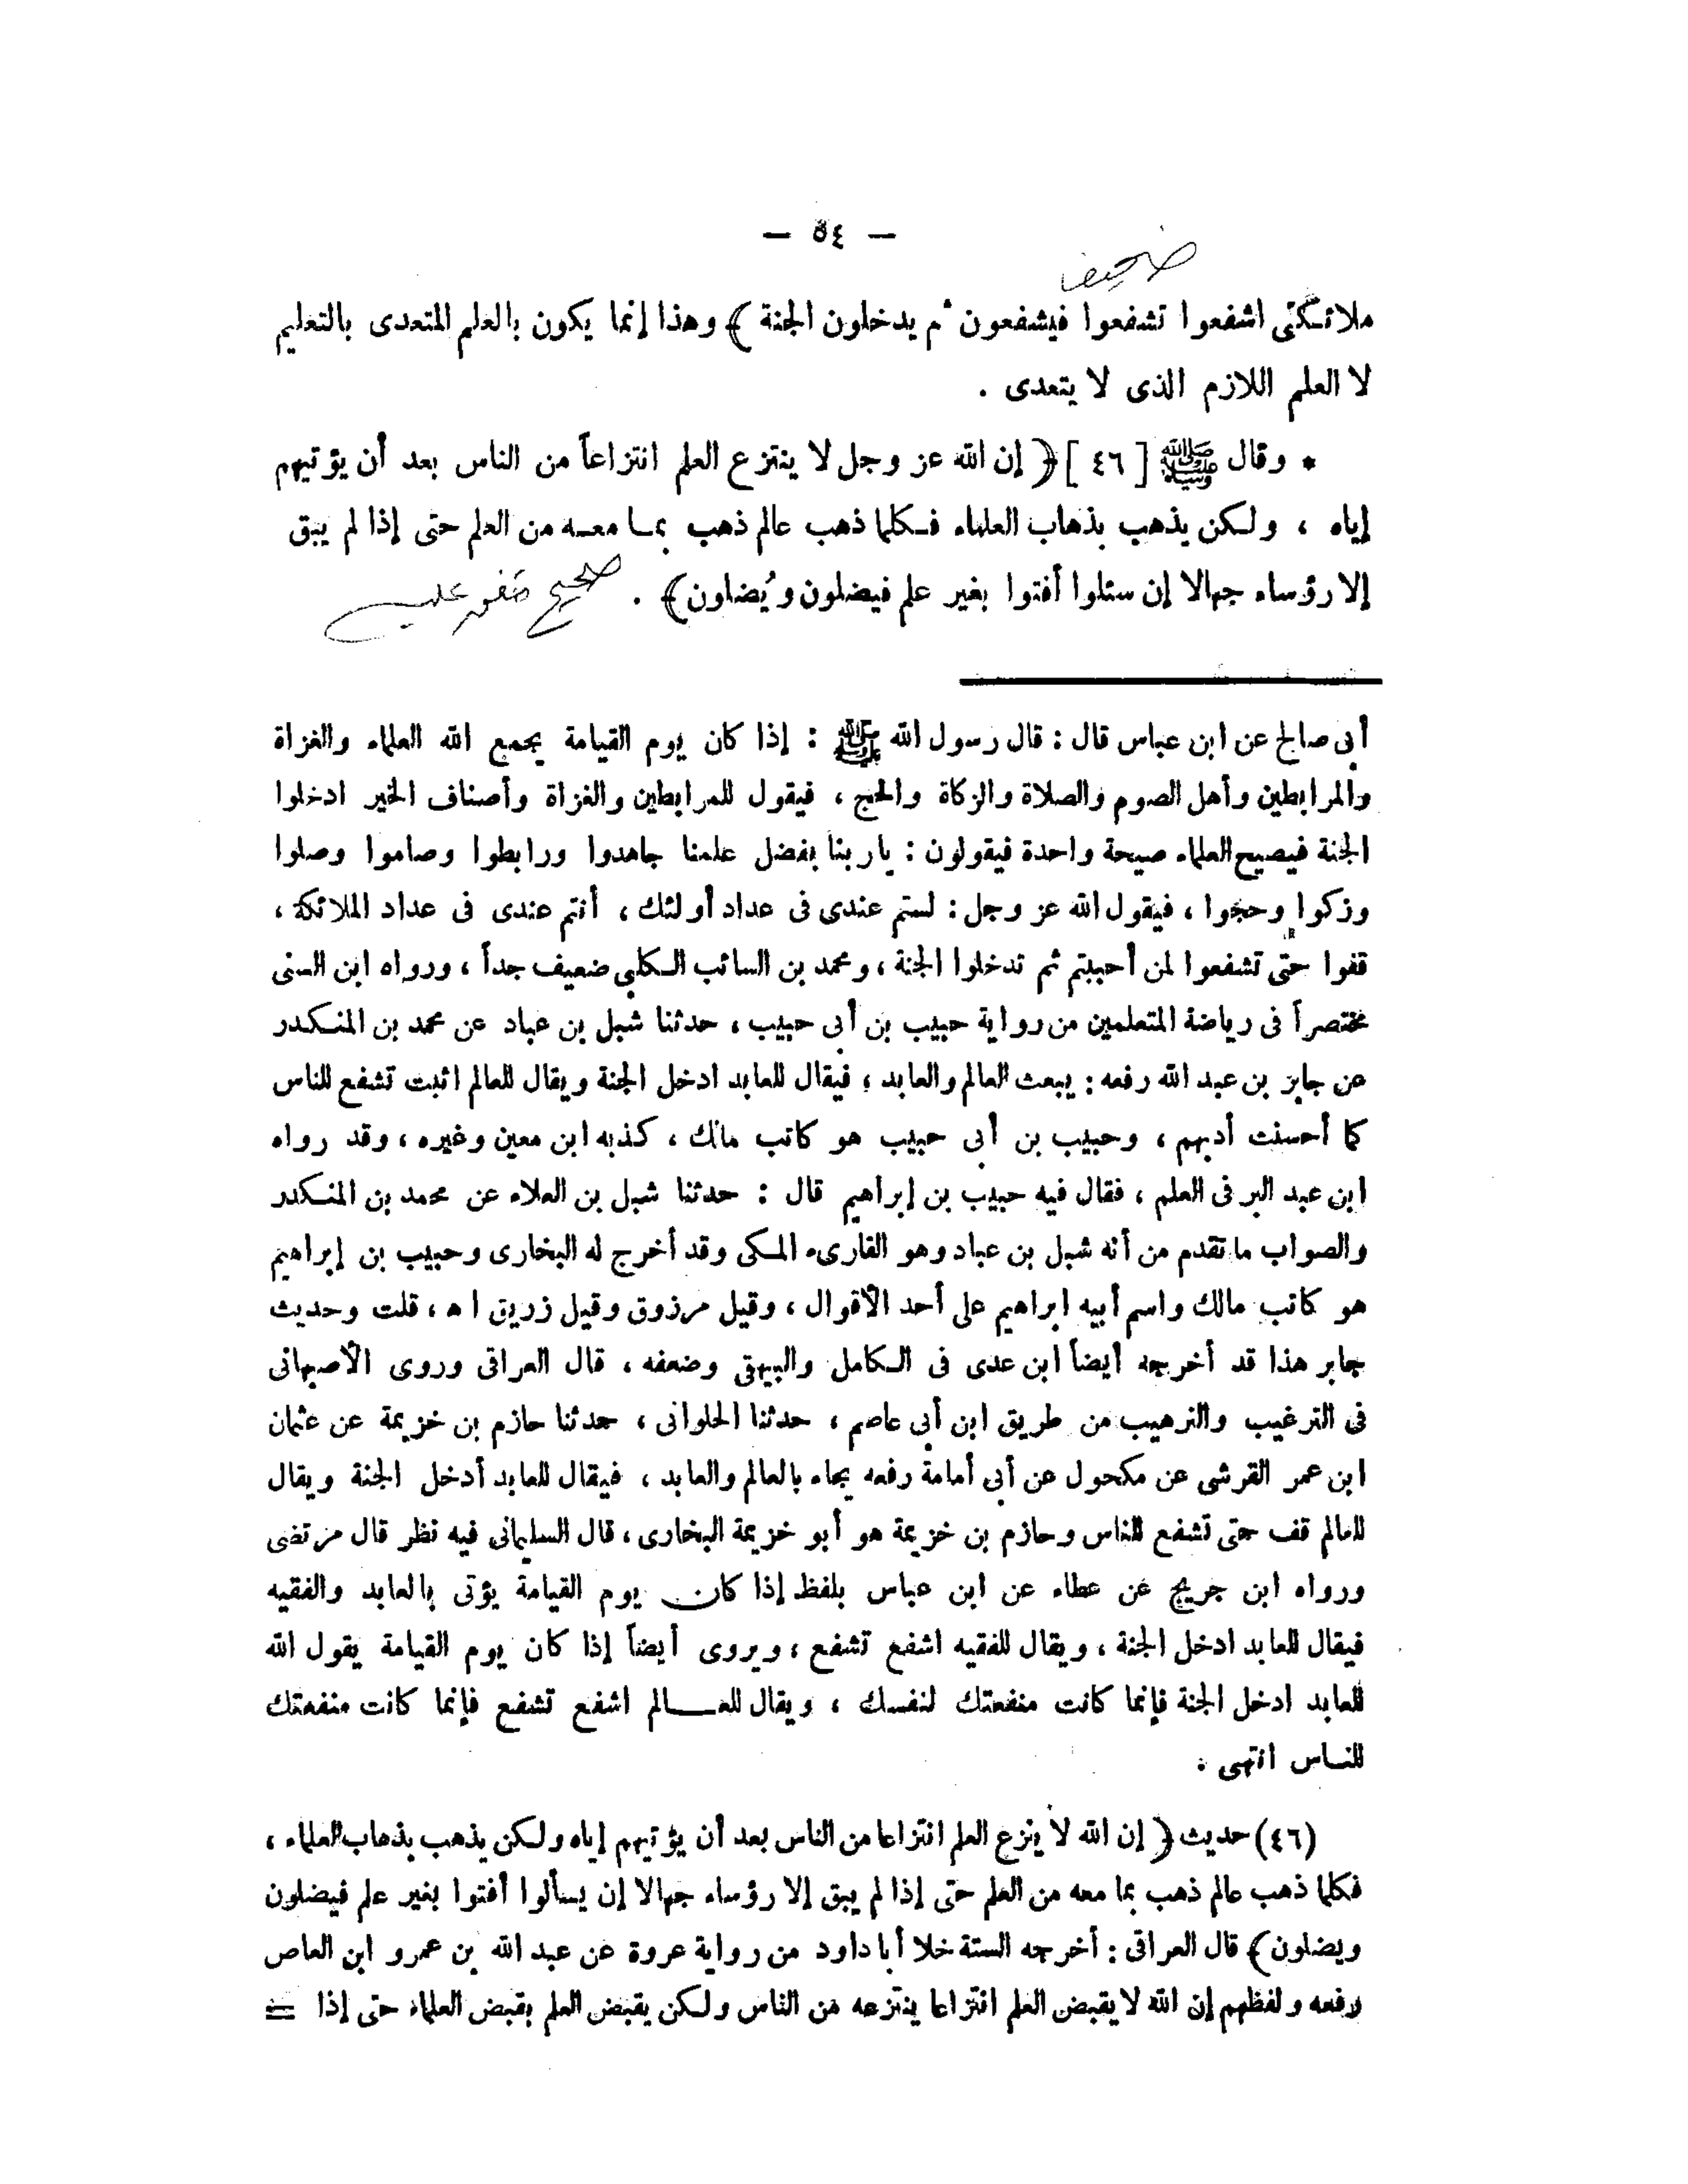 — ٥٤ —
ضعيف
ملائكتى اشفعوا تشفعوا فيشفعون ثم يدخلون الجنة ﴾ وهذا إنما يكون بالعلم المتعدى بالتعليم
لا العلم اللازم الذى لا يتعدى .
* وقال ﷺ [ ٤٦ ] ﴿ إن الله عز وجل لا ينتزع العلم انتزاعاً من الناس بعد أن يؤتيهم
إياه ، ولكن يذهب بذهاب العلماء فكلما ذهب عالم ذهب بما معه من العلم حتى إذا لم يبق
إلا رؤساء جهالا إن سئلوا أفتوا بغير علم فيضلون ويُضلون﴾ . صحيح متفق عليه
أبى صالح عن ابن عباس قال : قال رسول الله ﷺ : إذا كان يوم القيامة يجمع الله العلماء والغزاة
والمرابطين وأهل الصوم والصلاة والزكاة والحج ، فيقول للمرابطين والغزاة وأصناف الخير ادخلوا
الجنة فيصيح العلماء صيحة واحدة فيقولون : ياربنا بفضل علمنا جاهدوا ورابطوا وصاموا وصلوا
وزكوا وحجوا ، فيقول الله عز وجل : لستم عندى فى عداد أولئك ، أنتم عندى فى عداد الملائكة ،
قفوا حتى تشفعوا لمن أحببتم ثم تدخلوا الجنة ، ومحمد بن السائب الكلبي ضعيف جداً ، ورواه ابن السنى
مختصراً فى رياضة المتعلمين من رواية حبيب بن أبى حبيب ، حدثنا شبل بن عباد عن محمد بن المنكدر
عن جابر بن عبد الله رفعه : يبعث العالم والعابد ، فيقال للعابد ادخل الجنة ويقال للعالم اثبت تشفع للناس
كما أحسنت أدبهم ، وحبيب بن أبى حبيب هو كاتب مالك ، كذبه ابن معين وغيره ، وقد رواه
ابن عبد البر فى العلم ، فقال فيه حبيب بن إبراهيم قال : حدثنا شبل بن العلاء عن محمد بن المنكدر
والصواب ماتقدم من أنه شبل بن عباد وهو القارىء المكى وقد أخرج له البخارى وحبيب بن إبراهيم
هو كاتب مالك واسم أبيه ابراهيم على أحد الأقوال ، وقيل مرزوق وقيل زريق ا ه ، قلت وحديث
جابر هذا قد أخرجه أيضاً ابن عدى فى الكامل والبيهقى وضعفه ، قال العراقى وروى الأصبهانى
فى الترغيب والترهيب من طريق ابن أبى عاصم ، حدثنا الحلوانى ، حدثنا حازم بن خزيمة عن عثمان
ابن عمر القرشى عن مكحول عن أبى أمامة رفعه يجاء بالعالم والعابد ، فيقال للعابد أدخل الجنة ويقال
للعالم قف حتى تشفع للناس وحازم بن خزيمة هو أبو خزيمة البخارى ، قال السليمانى فيه نظر قال مرتضى
ورواه ابن جريج عن عطاء عن ابن عباس بلفظ إذا كان يوم القيامة يؤتى بالعابد والفقيه
فيقال للعابد ادخل الجنة ، ويقال للفقيه اشفع تشفع ، ويروى أيضاً إذا كان يوم القيامة يقول الله
للعابد ادخل الجنة فإنما كانت منفعتك لنفسك ، ويقال للعالم اشفع تشفع فإنما كانت منفعتك
للناس انتهى .
(٤٦) حديث ﴿ إن الله لا ينزع العلم انتزاعا من الناس بعد أن يؤتيهم إياه ولكن يذهب بذهاب العلماء ،
فكلما ذهب عالم ذهب بما معه من العلم حتى إذا لم يبق إلا رؤساء جهالا إن يسألوا أفتوا بغير علم فيضلون
ويضلون﴾ قال العراقى : أخرجه الستة خلا أبا داود من رواية عروة عن عبد الله بن عمرو ابن العاص
رفعه ولفظهم إن الله لا يقبض العلم انتزاعا ينتزعه من الناس ولكن يقبض العلم بقبض العلماء حتى إذا =